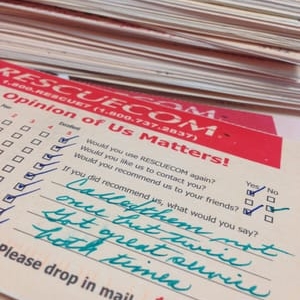 RESCUECOM
RESCUECOM
1.800.RESCUE7 (1.800.737.2837)
Opinion of Us Matters!
Excellent
3 4 5
Would you use RESCUECOM again?
Would you like us to contact you?
Would you recommend us to your friends?
Yes No
If you did recommend us, what would you say?
Called them not
once but twice
Got great service
both times
Please drop in mail